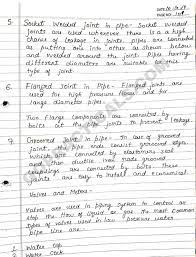 5. Socket Welded Joint in pipe - Socket Welded
joints are used wherever there is a high
chance of leakage in joints. pipes are connected
as putting one into other as shown below
and welded around the joint. Pipe having
different diameters are suitable for this
type of joint.
6. Flanged Joint in Pipe - Flanged joints are
used for high pressure flows and for
large diameter pipes.
Two flange components are connected by
bolts at the pipe joint to
7. Grooved Joint in pipe - In case of grooved
joint, pipe ends consist grooves
which are connected by elastomers seal
and then ductile iron made grooved
couplings are connected by bolts. These joints
are easy to install and economical
Valves and Meters -
Valves are used in piping system to control or
stop the flow of liquid or gas. Most common
types of valves used in low pressure water
pipe line are.
1. Water Tap
2. Water Cock